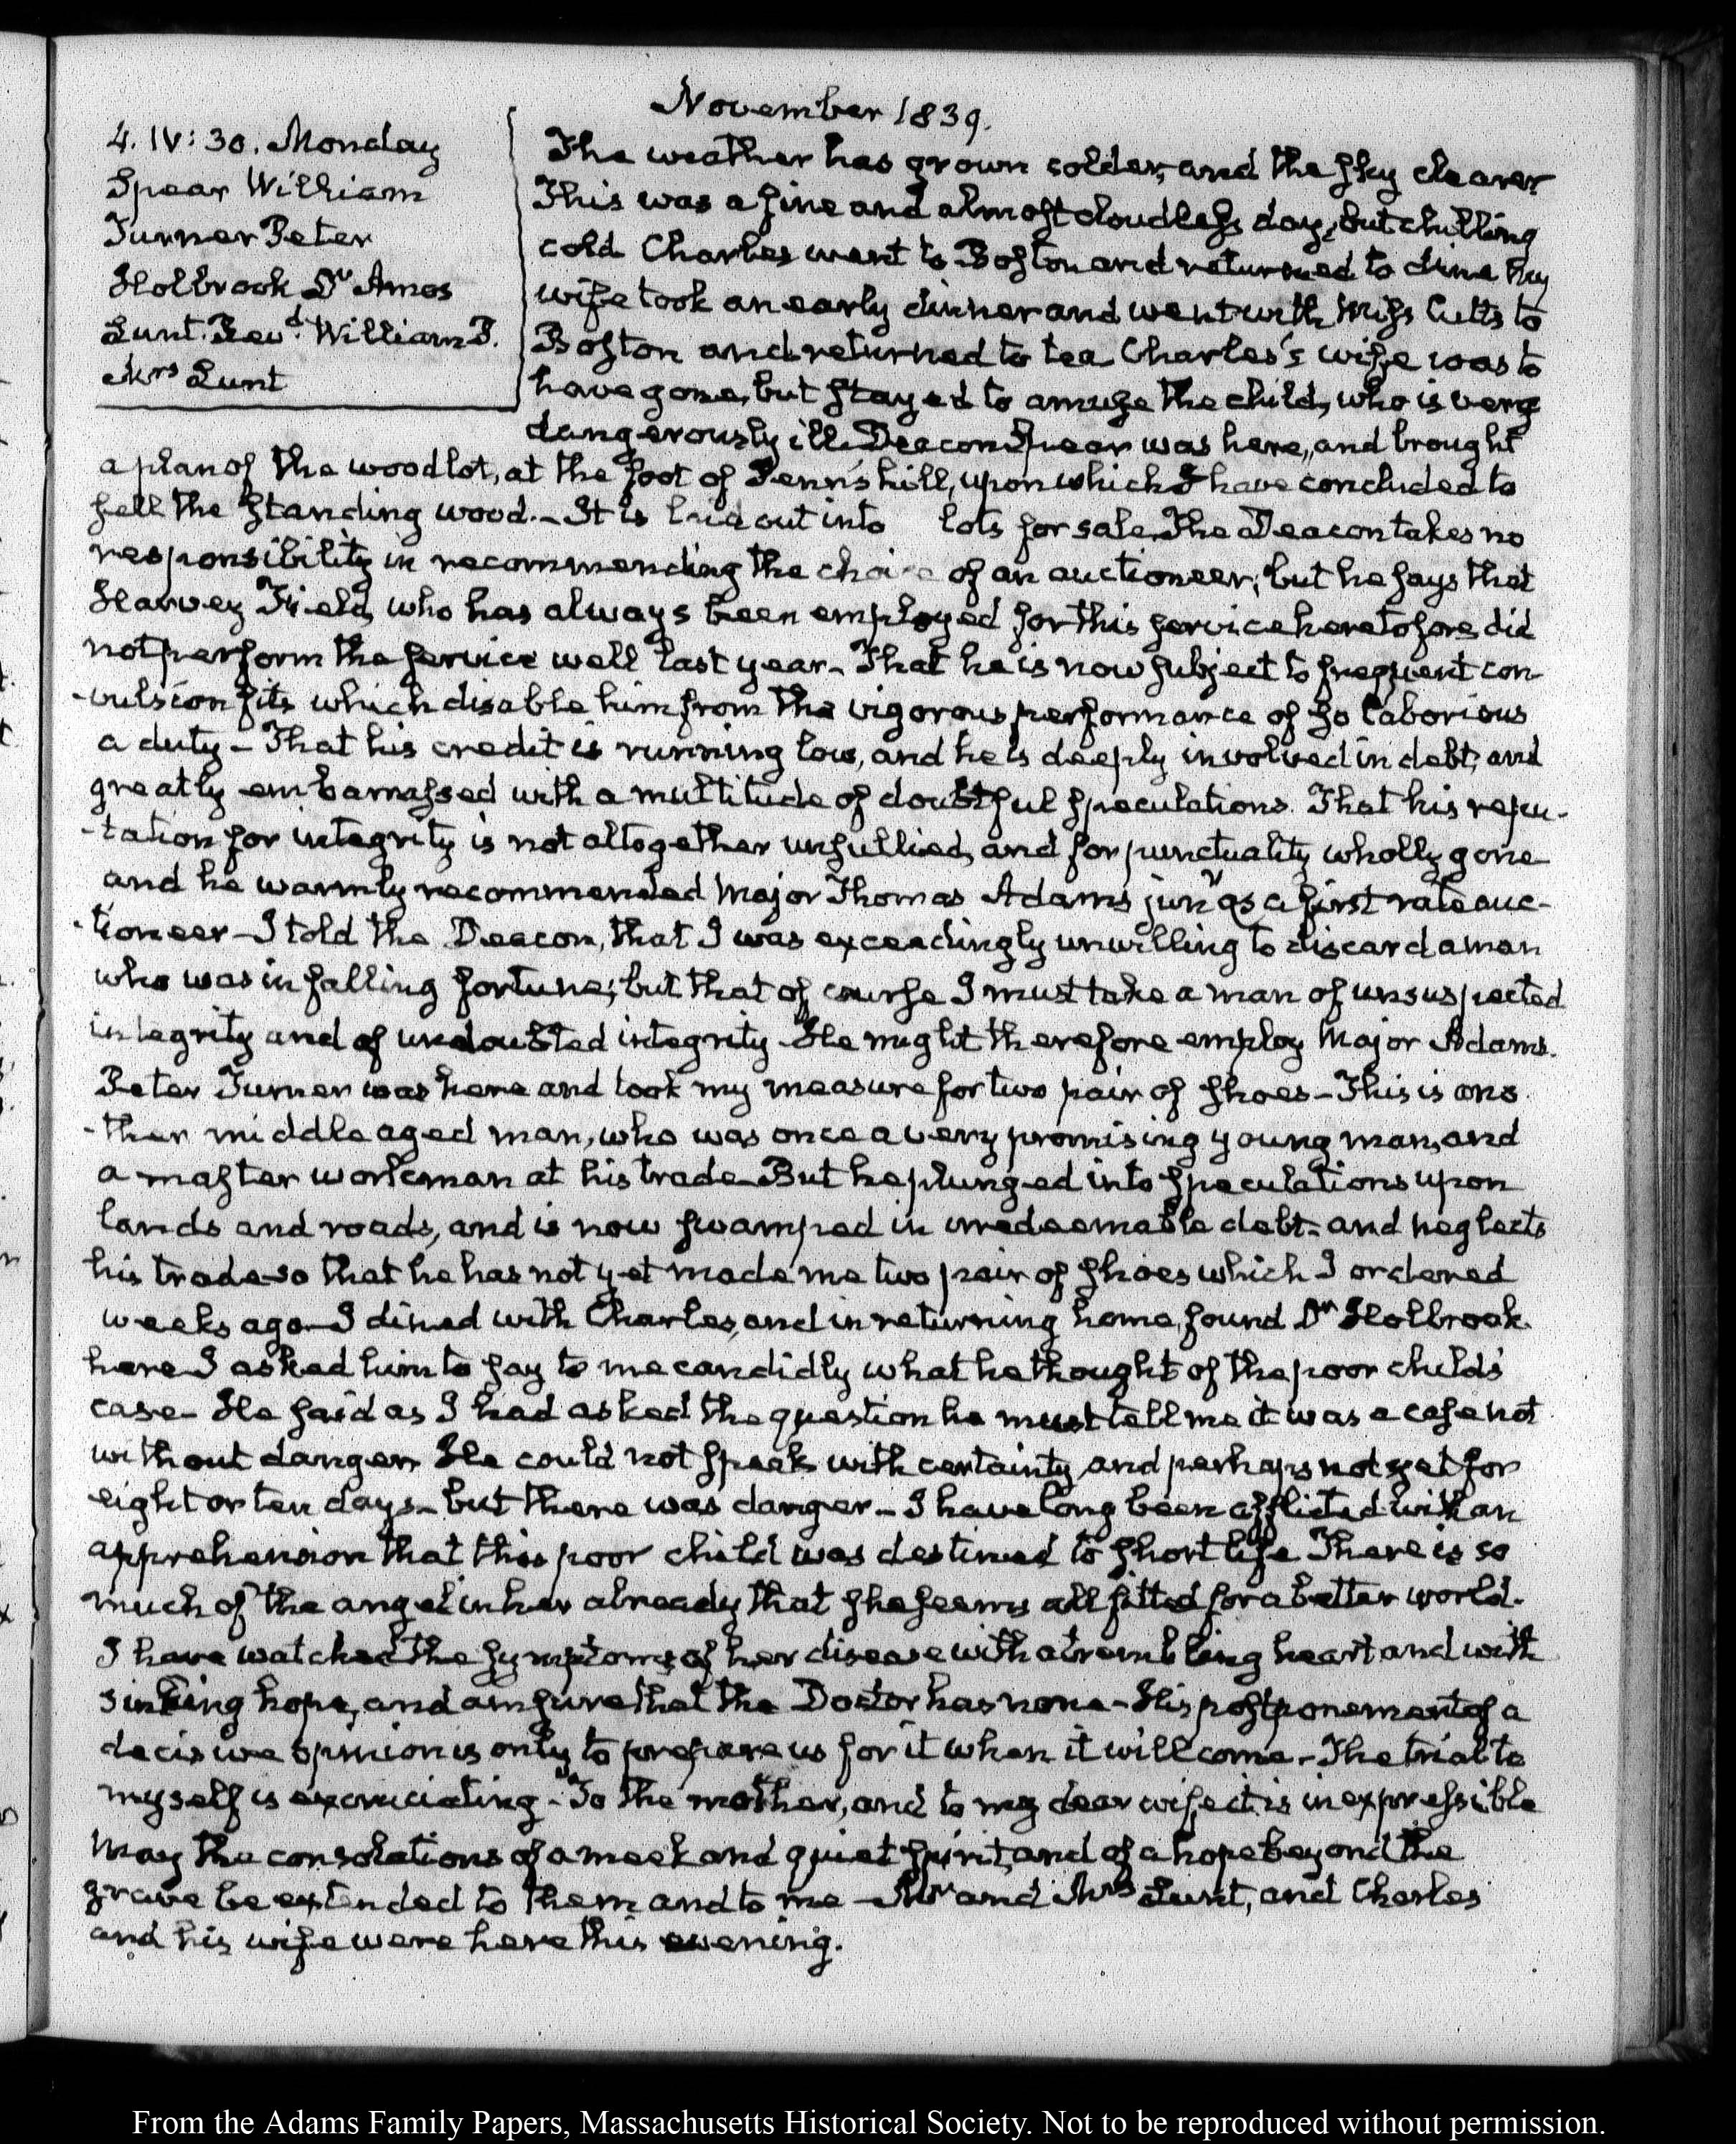 November 1839.
4. IV: 30. Monday
Spear William
Turner Peter
Holbrook Dr Amos
Lunt. Revd. William P.
Mrs Lunt
The weather has grown colder, and the sky clearer
This was a fine and almost cloudless day, but chilling
cold Charles went to Boston and returned to dine My
wife took an early dinner and went with Miss Cutts to
Boston and returned to tea Charles's wife was to
have gone, but stayed to amuse the child, who is very
dangerously ill. Deacon Spear was here, and brought
a plan of the woodlot, at the foot of Penn's hill, upon which I have concluded to
sell the standing wood. - It is laid out into lots for sale. The Deacon takes no
responsibility in recommending the choice of an auctioneer; but he says that
Harvey Field, who has always been employed for this service heretofore, did
not perform the service well last year - That he is now subject to frequent con-
-vulsion fits which disable him from the vigorous performance of so laborious
a duty - That his credit is running low, and he is deeply involved in debt, and
greatly embarrassed with a multitude of doubtful speculations. That his repu-
-tation for integrity is not altogether unsullied, and for punctuality wholly gone
and he warmly recommended Major Thomas Adams junr as a first rate auc-
-tioneer - I told the Deacon, that I was exceedingly unwilling to discard a man
who was in falling fortune; but that of course I must take a man of unsuspected
integrity and of undoubted integrity He might therefore employ Major Adams.
Peter Turner was here and took my measure for two pair of shoes - This is ano
-ther middle aged man, who was once a very promising young man, and
a master workman at his trade But he plunged into speculations upon
lands and roads, and is now swamped in irredeemable debt - and neglects
his trade so that he has not yet made me two pair of shoes which I ordered
weeks ago - I dined with Charles, and in returning home, found Dr Holbrook
here I asked him to say to me candidly what he thought of the poor child's
case - He said as I had asked the question he must tell me it was a case not
without danger. He could not speak with certainty and perhaps not yet for
eight or ten days - but there was danger - I have long been afflicted with an
apprehension that this poor child was destined to short life There is so
much of the angel in her already that she seems all fitted for a better world.
I have watched the symptoms of her disease with a trembling heart and with
sinking hope, and am sure that the Doctor has none - His postponement of a
decisive opinion is only to prepare us for it when it will come. - The trial to
myself is excruciating - To the mother, and to my dear wife it is inexpressible
May the consolations of a meek and quiet spirit, and of a hope beyond the
grave be extended to them and to me - Mr and Mrs Lunt, and Charles
and his wife were here this evening.
From the Adams Family Papers, Massachusetts Historical Society. Not to be reproduced without permission.